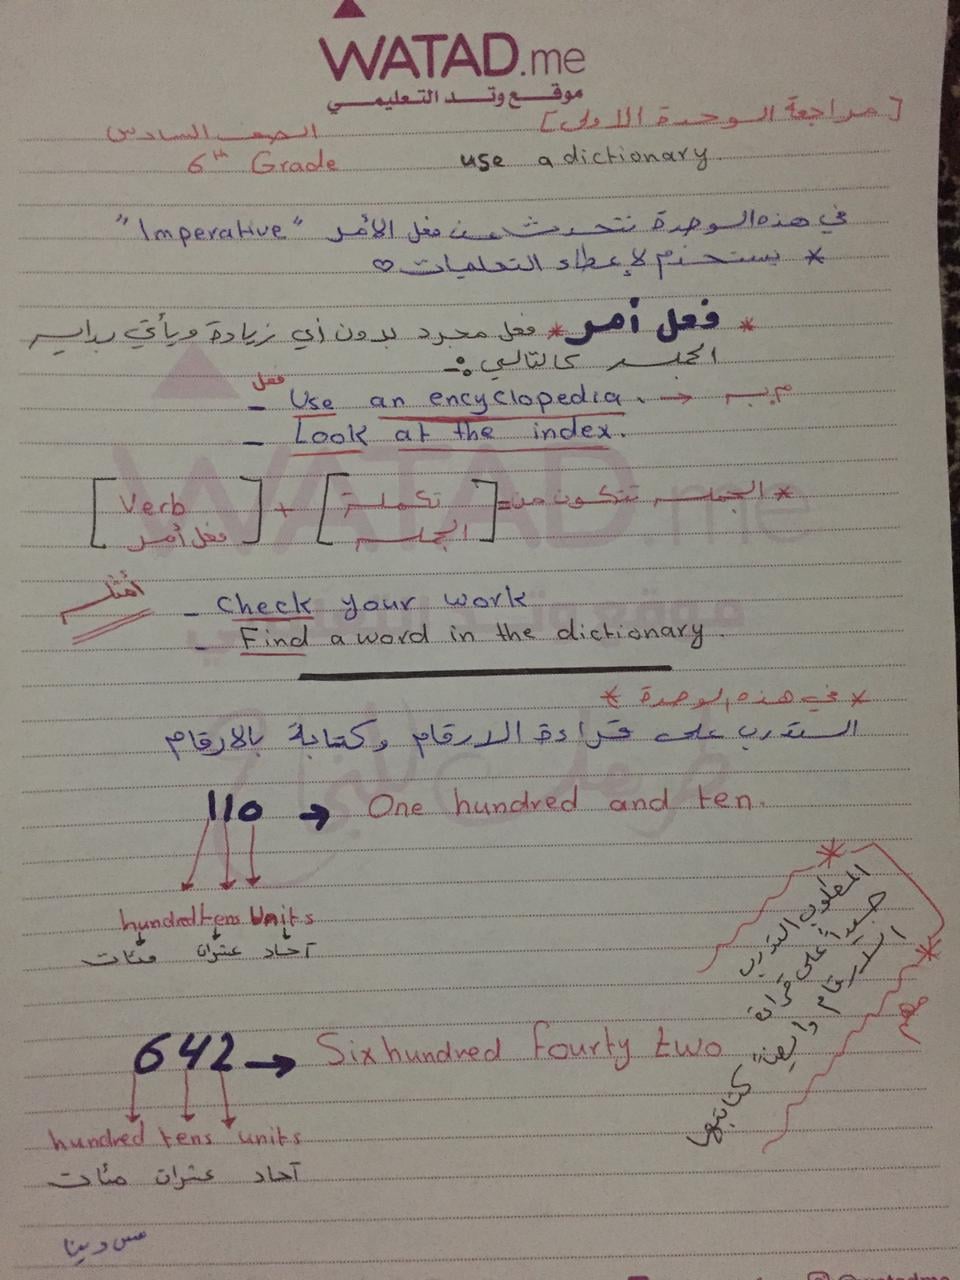 WATAD.me
موقع وتد التعليمي
[مراجعة الوحدة الاولى]
الصف السادس
6th Grade
use a dictionary
في هذه الوحدة نتحدث عن فعل الأمر "Imperative"
* يستخدم لإعطاء التعليمات ♡
* فعل أمر * فعل مجرد بدون أي زيادة ويأتي بداية
الجملة كالتالي :-
فعل
- Use an encyclopedia. →
- Look at the index.
* الجملة تتكون من = [تكملة الجملة] + [Verb فعل أمر]
أمثلة
- Check your work
- Find a word in the dictionary.
* في هذه الوحدة *
التدرب على قراءة الارقام وكتابة بالارقام
110 → One hundred and ten.
hundred tens Units
مئات عشرات آحاد
* المطلوب التدرب
جيداً على قراءة
الارقام وايضاً كتابتها *
مهم
642 → Six hundred fourty two
hundred tens units
مئات عشرات آحاد
مس دينا